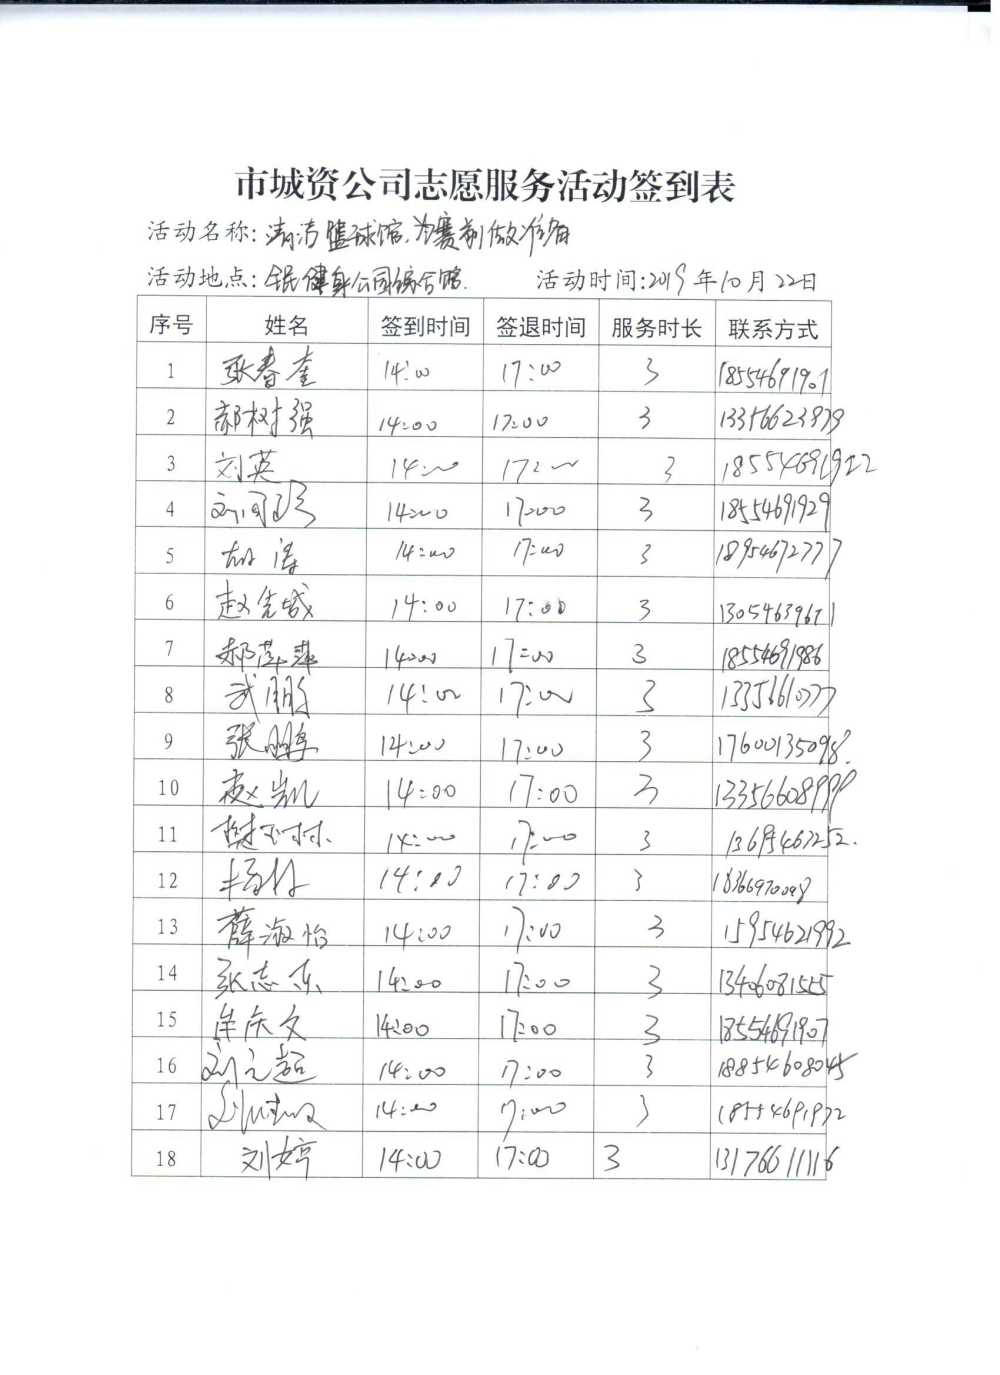 市城资公司志愿服务活动签到表
活动名称:清洁篮球馆.为赛前做准备
活动地点:全民健身公司综合馆. 活动时间:2019年10月22日
序号 姓名 签到时间 签退时间 服务时长 联系方式
1 张春奎 14:00 17:00 3 18554691901
2 郝树强 14:00 17:00 3 13356623979
3 刘英 14:00 17:00 3 18554691922
4 14:00 17:00 3 18554691929
5 胡涛 14:00 17:00 3 18954672777
6 赵先城 14:00 17:00 3 13054639611
7 郝萍萍 14:00 17:00 3 18554691986
8 武鹏 14:00 17:00 3
9 张鹏 14:00 17:00 3 17600135098.
10 赵凯 14:00 17:00 3 13356608999
11 14:00 17:00 3 13695467252.
12 14:00 17:00 3 18366970098
13 薛淑怡 14:00 17:00 3 15954621992
14 张志东 14:00 17:00 3 13406081555
15 牟庆文 14:00 17:00 3 18554691907
16 刘元超 14:00 17:00 3 18854608045
17 14:00 17:00 3 18554691972
18 刘婷 14:00 17:00 3 13176611116